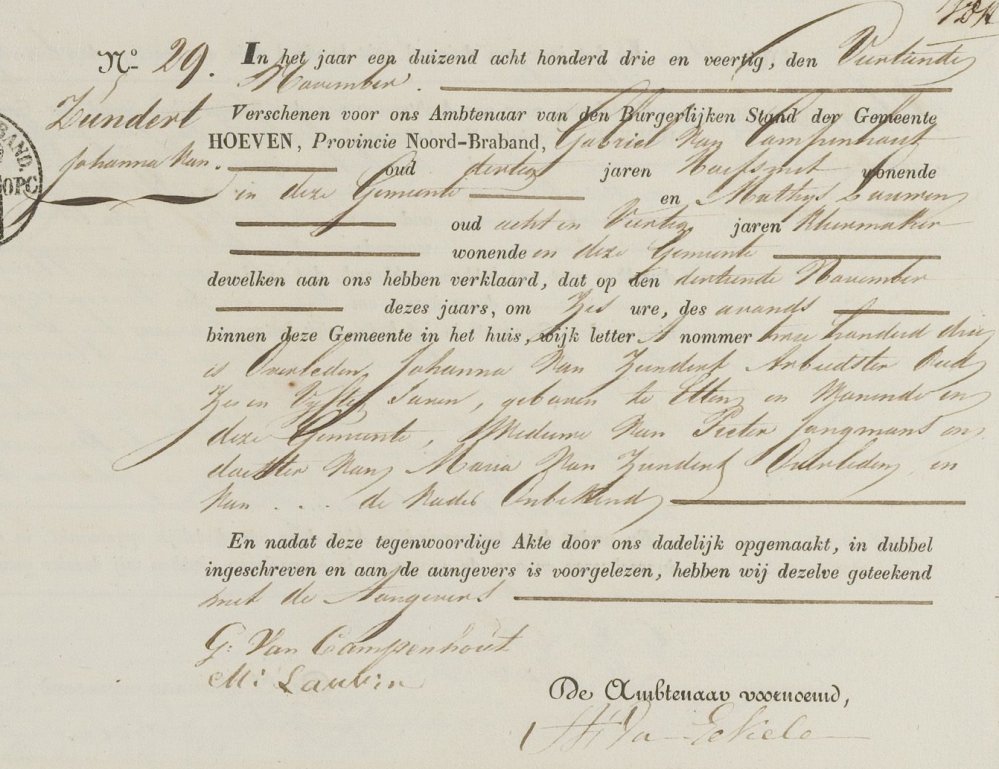 No 29. In het jaar een duizend acht honderd drie en veertig, den Viertiende
November.
Zundert Verschenen voor ons Ambtenaar van den Burgerlijken Stand der Gemeente
Johanna Van. HOEVEN, Provincie Noord-Braband, Gabriel Van Campenhout
oud dertig jaren Hoefsmit wonende
in deze Gemeente en Mathijs Lauwen
oud acht en Veertig jaren Kleermaker
wonende in deze Gemeente
dewelken aan ons hebben verklaard, dat op den dertiende November
dezes jaars, om Zes ure, des avonds
binnen deze Gemeente in het huis, wijk letter A nommer twee honderd drie
is Overleden Johanna Van Zundert Arbeidster Oud
Zes en Vyftig Jaren, geboren te Etten en Wonende in
deze Gemeente, Weduwe Van Pieter Jongmans en
dochter Van Maria Van Zundert Overleden en
Van . . . de Vader Onbekend
En nadat deze tegenwoordige Akte door ons dadelijk opgemaakt, in dubbel
ingeschreven en aan de aangevers is voorgelezen, hebben wij dezelve geteekend
met de Aangevers
G: Van Campenhout
M: Lauwen
De Ambtenaar voornoemd,